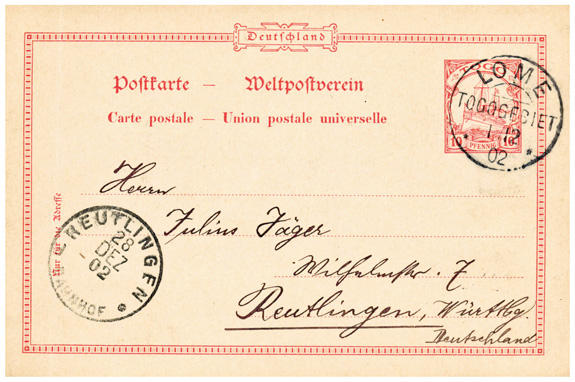 Deutschland
Postkarte — Weltpostverein
Carte postale — Union postale universelle
TOGO
10 PFENNIG 10
LOME
TOGOGEBIET
1 12
02
Herrn
Julius Jäger
Wilhelmstr. 7
Reutlingen, Württbg.
Deutschland
Nur für die Adresse
REUTLINGEN
28
DEZ
02
BAHNHOF